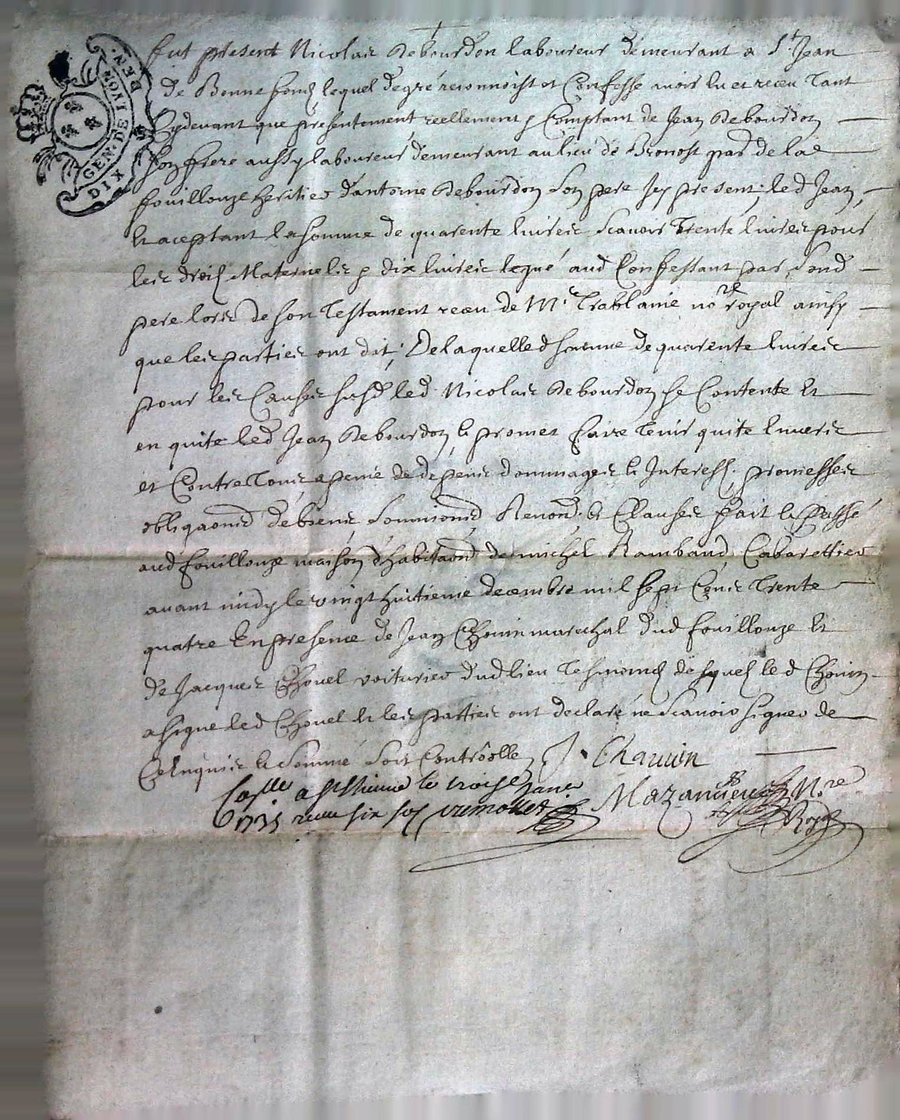 GEN. DE LION
DEN.
DIX
fut present Nicolas Debourdon laboureur demeurant a St Jean
de Bonnefond lequel de gré reconnoist et Confesse avoir eu et receu tant
Cydevant que presentement reellement & Comptant de Jean Debourdon
son frere aussy laboureur demeurant au lieu de par de la
fouillouze heritier d'antoine Debourdon son pere Icy present led Jean
et aceptant la somme de quarente livres scavoir trente livres pour
les droitz Maternels & dix livres legué aud Confessant par sond
pere lors de son Testament receu de Me Trablaine nore royal ainsy
que les parties ont dit; De laquelle d somme de quarente livres
pour les Causes susd led Nicolas Debourdon se Contente et
en quite led Jean Debourdon & promet faire tenir quite envers
et Contre Tous a peine de depens dommages & Interess, promesses
obligaons de biens soumions Renonons & Clauses fait & Passé
aud fouillouze maison d'habitaon de michel Rambaud Cabarettier
avant midy le vingt huitieme decembre mil sept Cens Trente
quatre En presence de Jean Chouin marechal dud fouillouze et
de Jacques Chovel voiturier dud lieu Tesmoins desquels led Chouin
a signé led Chovel et les parties ont declaré ne scavoir signer de
Ce Enquis & sommé Soit Controolle J. Chauvin
Collé a st Etienne le troise janer Mazancieux Nre
1735 receu six sols Royal